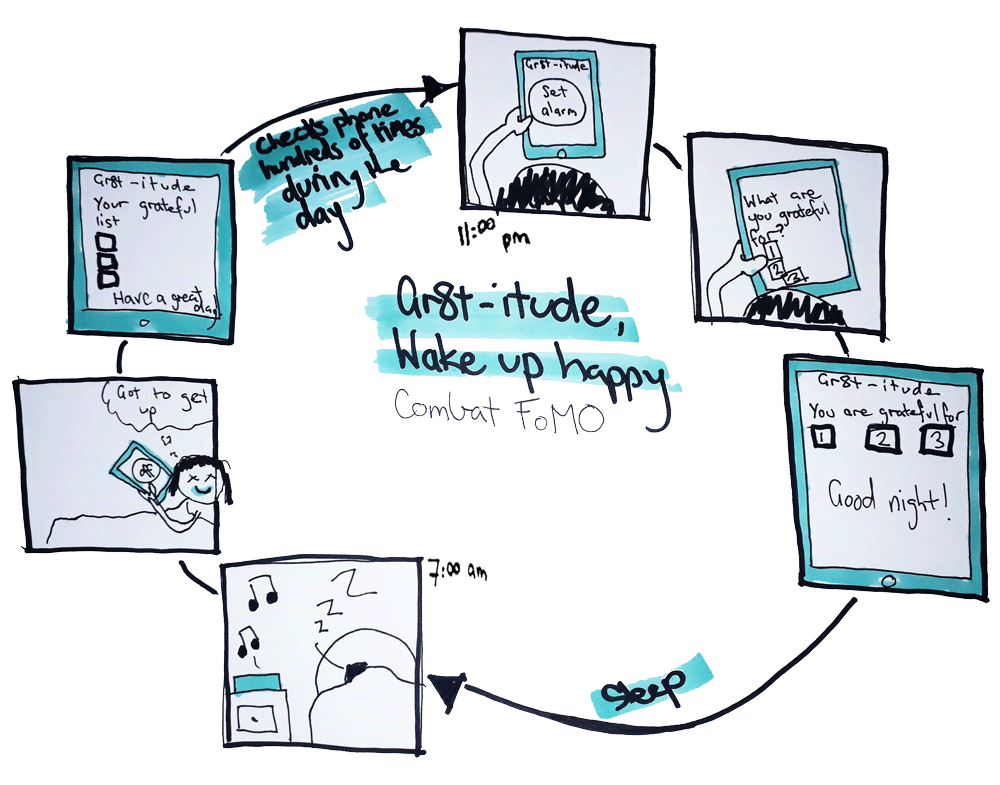 Gr8t-itude,
Wake up happy
Combat FoMO
11:00
pm
Gr8t-itude
Set
alarm
What are
you grateful
for?
1
2
3
Gr8t-itude
You are grateful for
1 2 3
Good night!
Sleep
7:00 am
Z
Z
Z
Z
Got to get
up
off
Gr8t-itude
Your grateful
list
Have a great
day
Checks phone
hundreds of times
during the
day